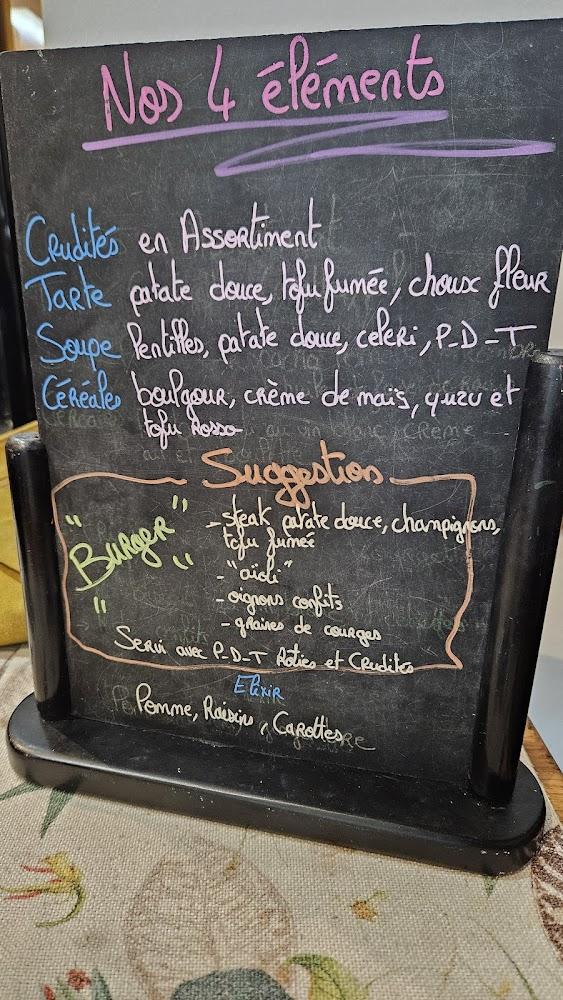 Nos 4 éléments
Crudités en Assortiment
Tarte patate douce, tofu fumée, choux fleur
Soupe lentilles, patate douce, celeri, P-D-T
Céréales boulgour, crème de maïs, yuzu et
tofu Rosso
Suggestion
"Burger" - steak patate douce, champignons,
tofu fumée
- "aïoli"
- oignons confits
- graines de courges
Servi avec P-D-T Rôties et Crudités
Elixir
Pomme, Raisins, Carottes